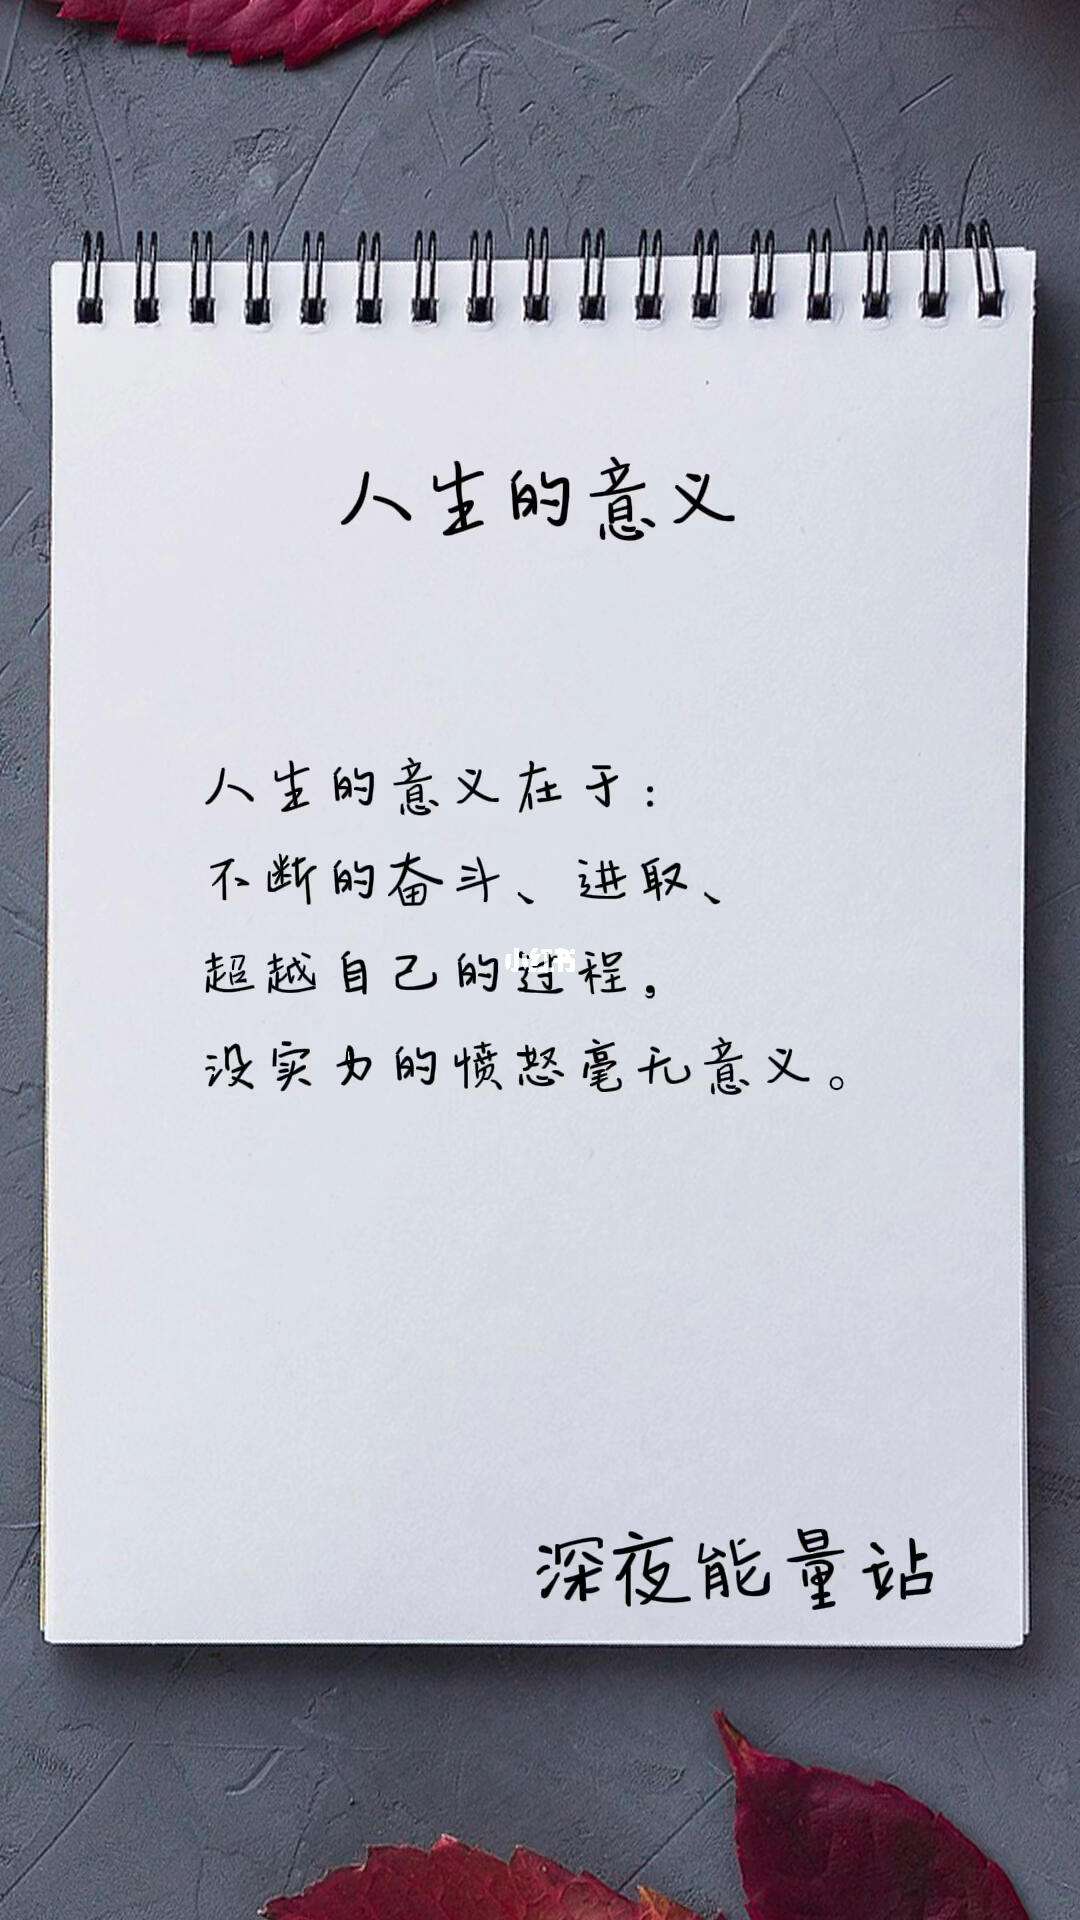 人生的意义
人生的意义在于：
不断的奋斗、进取、
超越自己的过程，
小红书
没实力的愤怒毫无意义。
深夜能量站